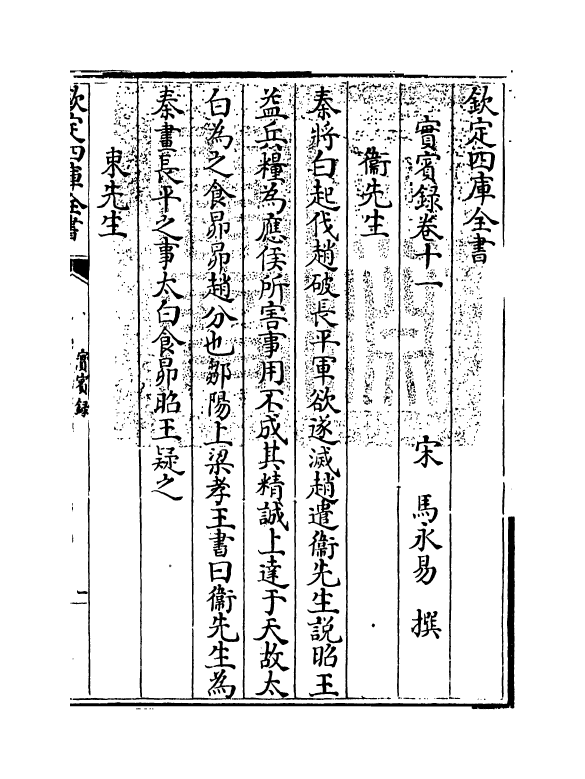 欽定四庫全書
實賓録卷十一
宋 馬永易 撰
衞先生
秦將白起伐趙破長平軍欲遂滅趙遣衞先生説昭王
益兵糧為應侯所害事用不成其精誠上達于天故太
白為之食昴昴趙分也鄒陽上梁孝王書曰衞先生為
秦畫長平之事太白食昴昭王疑之
東先生
欽定四庫全書
實賓録